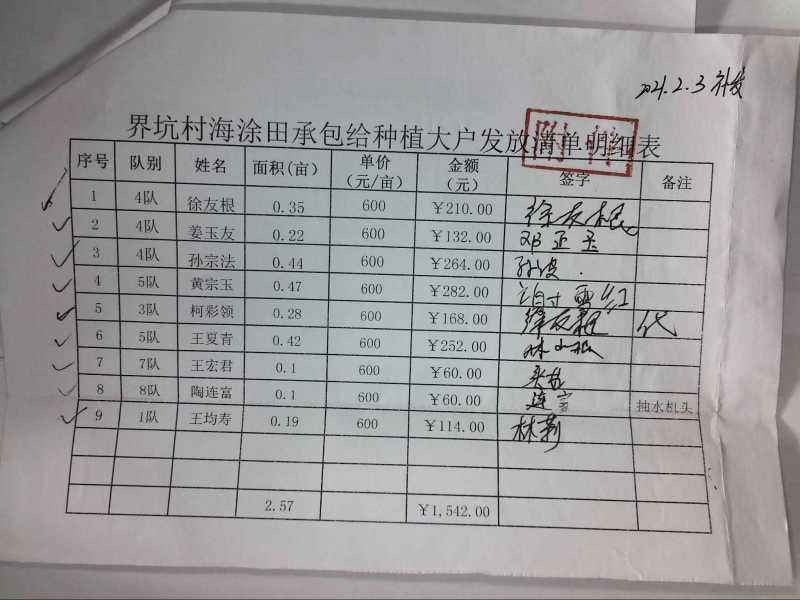 2021.2.3 补发
界坑村海涂田承包给种植大户发放清单明细表
序号 队别 姓名 面积(亩) 单价(元/亩) 金额(元) 签字 备注
1 4队 徐友根 0.35 600 ￥210.00 徐友根
2 4队 姜玉友 0.22 600 ￥132.00
3 4队 孙宗法 0.44 600 ￥264.00 孙波
4 5队 黄宗玉 0.47 600 ￥282.00
5 3队 柯彩领 0.28 600 ￥168.00 代
6 5队 王夏青 0.42 600 ￥252.00
7 7队 王宏君 0.1 600 ￥60.00
8 8队 陶连富 0.1 600 ￥60.00 连富 抽水机头
9 1队 王均寿 0.19 600 ￥114.00 林莉
2.57 ￥1,542.00